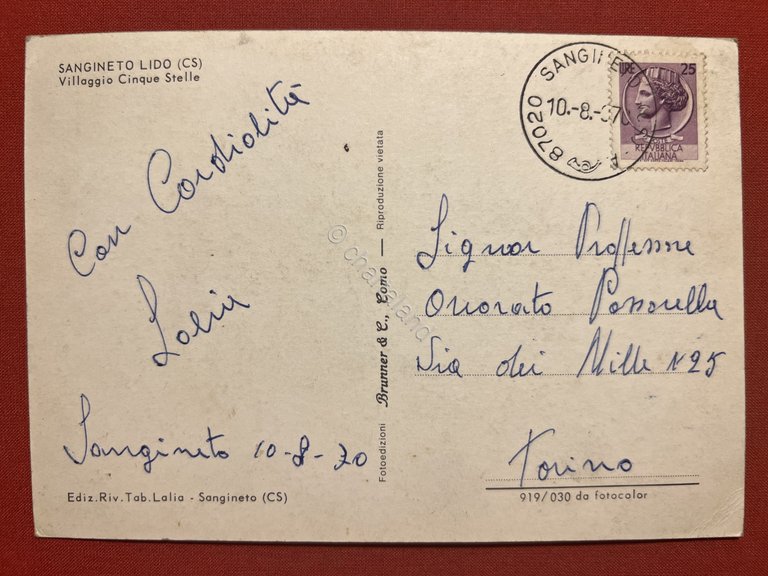 SANGINETO LIDO (CS)
Villaggio Cinque Stelle
Con Cordialità
Sangineto 10-8-70
Ediz.Riv.Tab.Lalia - Sangineto (CS)
Fotoedizioni Brunner & C., Como — Riproduzione vietata
© charaland
87020 SANGINETO
10.-8.-970
LIRE 25
POSTE
REPVBBLICA
ITALIANA
Signor Professore
Onorato Passarella
Via dei Mille N 25
Torino
919/030 da fotocolor